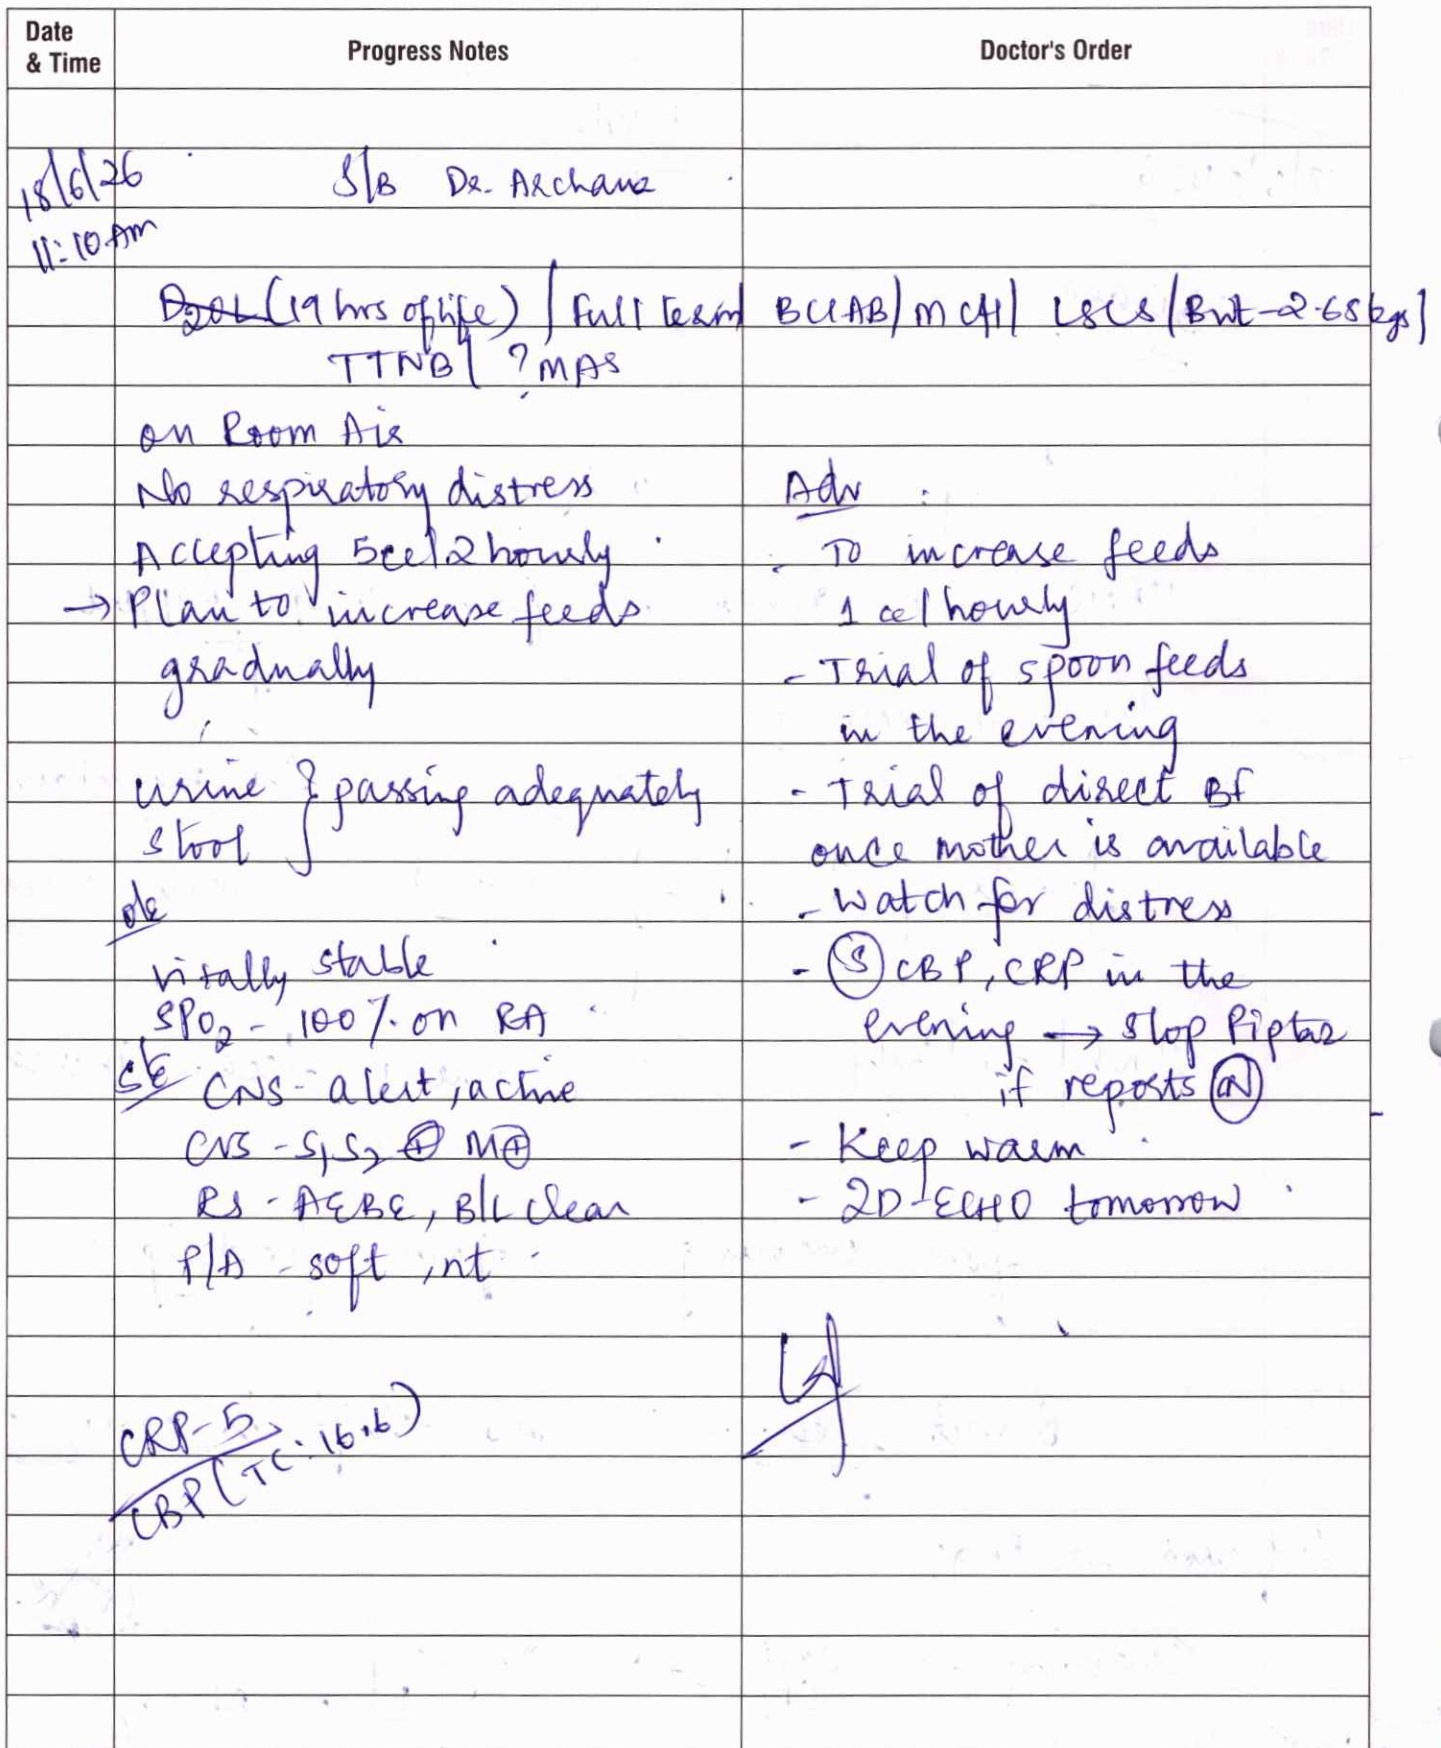 Date & Time
Progress Notes
Doctor's Order
18/6/26
11:10 Am
S/B Dr. Archana
D2OL (19 hrs of life) / Full term / BCIAB / MCH / LSCS / Bwt-2.68 kgs /
TTNB / ? MAS
on Room Air
No respiratory distress
Accepting 5cc/2 hourly
→ Plan to increase feeds
gradually
urine } passing adequately
stool
o/e
vitally stable
SPO2 - 100% on RA
S/E CNS - alert, active
CVS - S1, S2 ⊕ M⊕
RS - AEBE, B/L clear
P/A - soft, nt
CRP-5
CBP (TC: 16.6)
Adv
- To increase feeds
1 cc/hourly
- Trial of spoon feeds
in the evening
- Trial of direct BF
once mother is available
- Watch for distress
- Ⓢ CBP, CRP in the
evening → Stop Piptaz
if reports Ⓝ
- Keep warm
- 2D-ECHO tomorrow